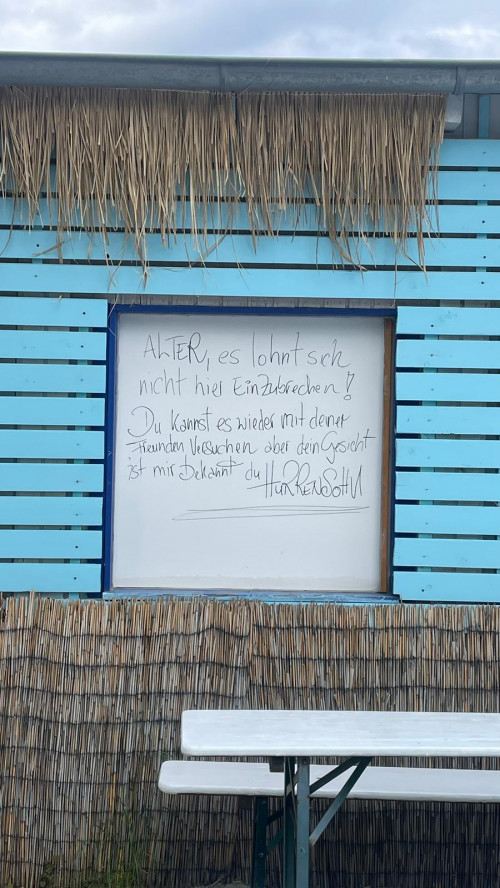 ALTER, es lohnt sich
nicht hier Einzubrechen!
Du kannst es wieder mit deiner
Freunden Versuchen aber dein Gesicht
ist mir Bekannt du HURRENSOHN